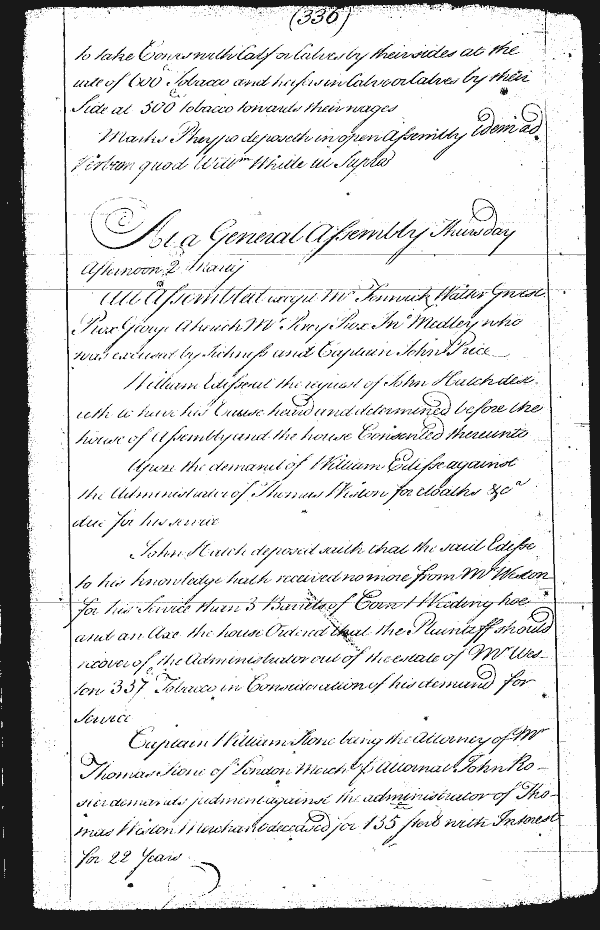 (336)
to take Cowes with Calf or Calves by their sides at the
rate of 600 Tobacco and heifers in Calve or Calves by their
Side at 500 tobacco towards their wages
Marks Pheypo deposeth in open Assembly Idem ad
Verbum quod Willm White ut Supra
At a General Assembly Thursday
Afternoon 2 March
All Assembled except Mr Fenwick Walter Guest
Prox George Akerich Mr Prox Jno Medley who
was excused by Sickness and Captain John Price
William Edisse at the request of John Hatch desi-
reth to have his Cause heard and determined before the
house of Assembly and the house Consented thereunto
Upon the demand of William Edisse against
the Administrator of Thomas Weston for cloaths &ca
due for his service
John Hatch deposed saith that the said Edisse
to his knowledge hath received no more from Mr Weston
for his Service than 3 Barrels of Corn 1 Weeding hoe
and an Axe the house Ordered that the Plaintiff should
recover of the Administrator out of the estate of Mr Wes-
ton 337 Tobacco in Consideration of his demand for
Service
Captain William Stone being the Attorney of Mr
Thomas Stone of London Merch by Attorney John Ro-
sier demands judment against the administrator of Tho-
mas Weston Merchant deceased for 155 sterl with Interest
for 22 Years